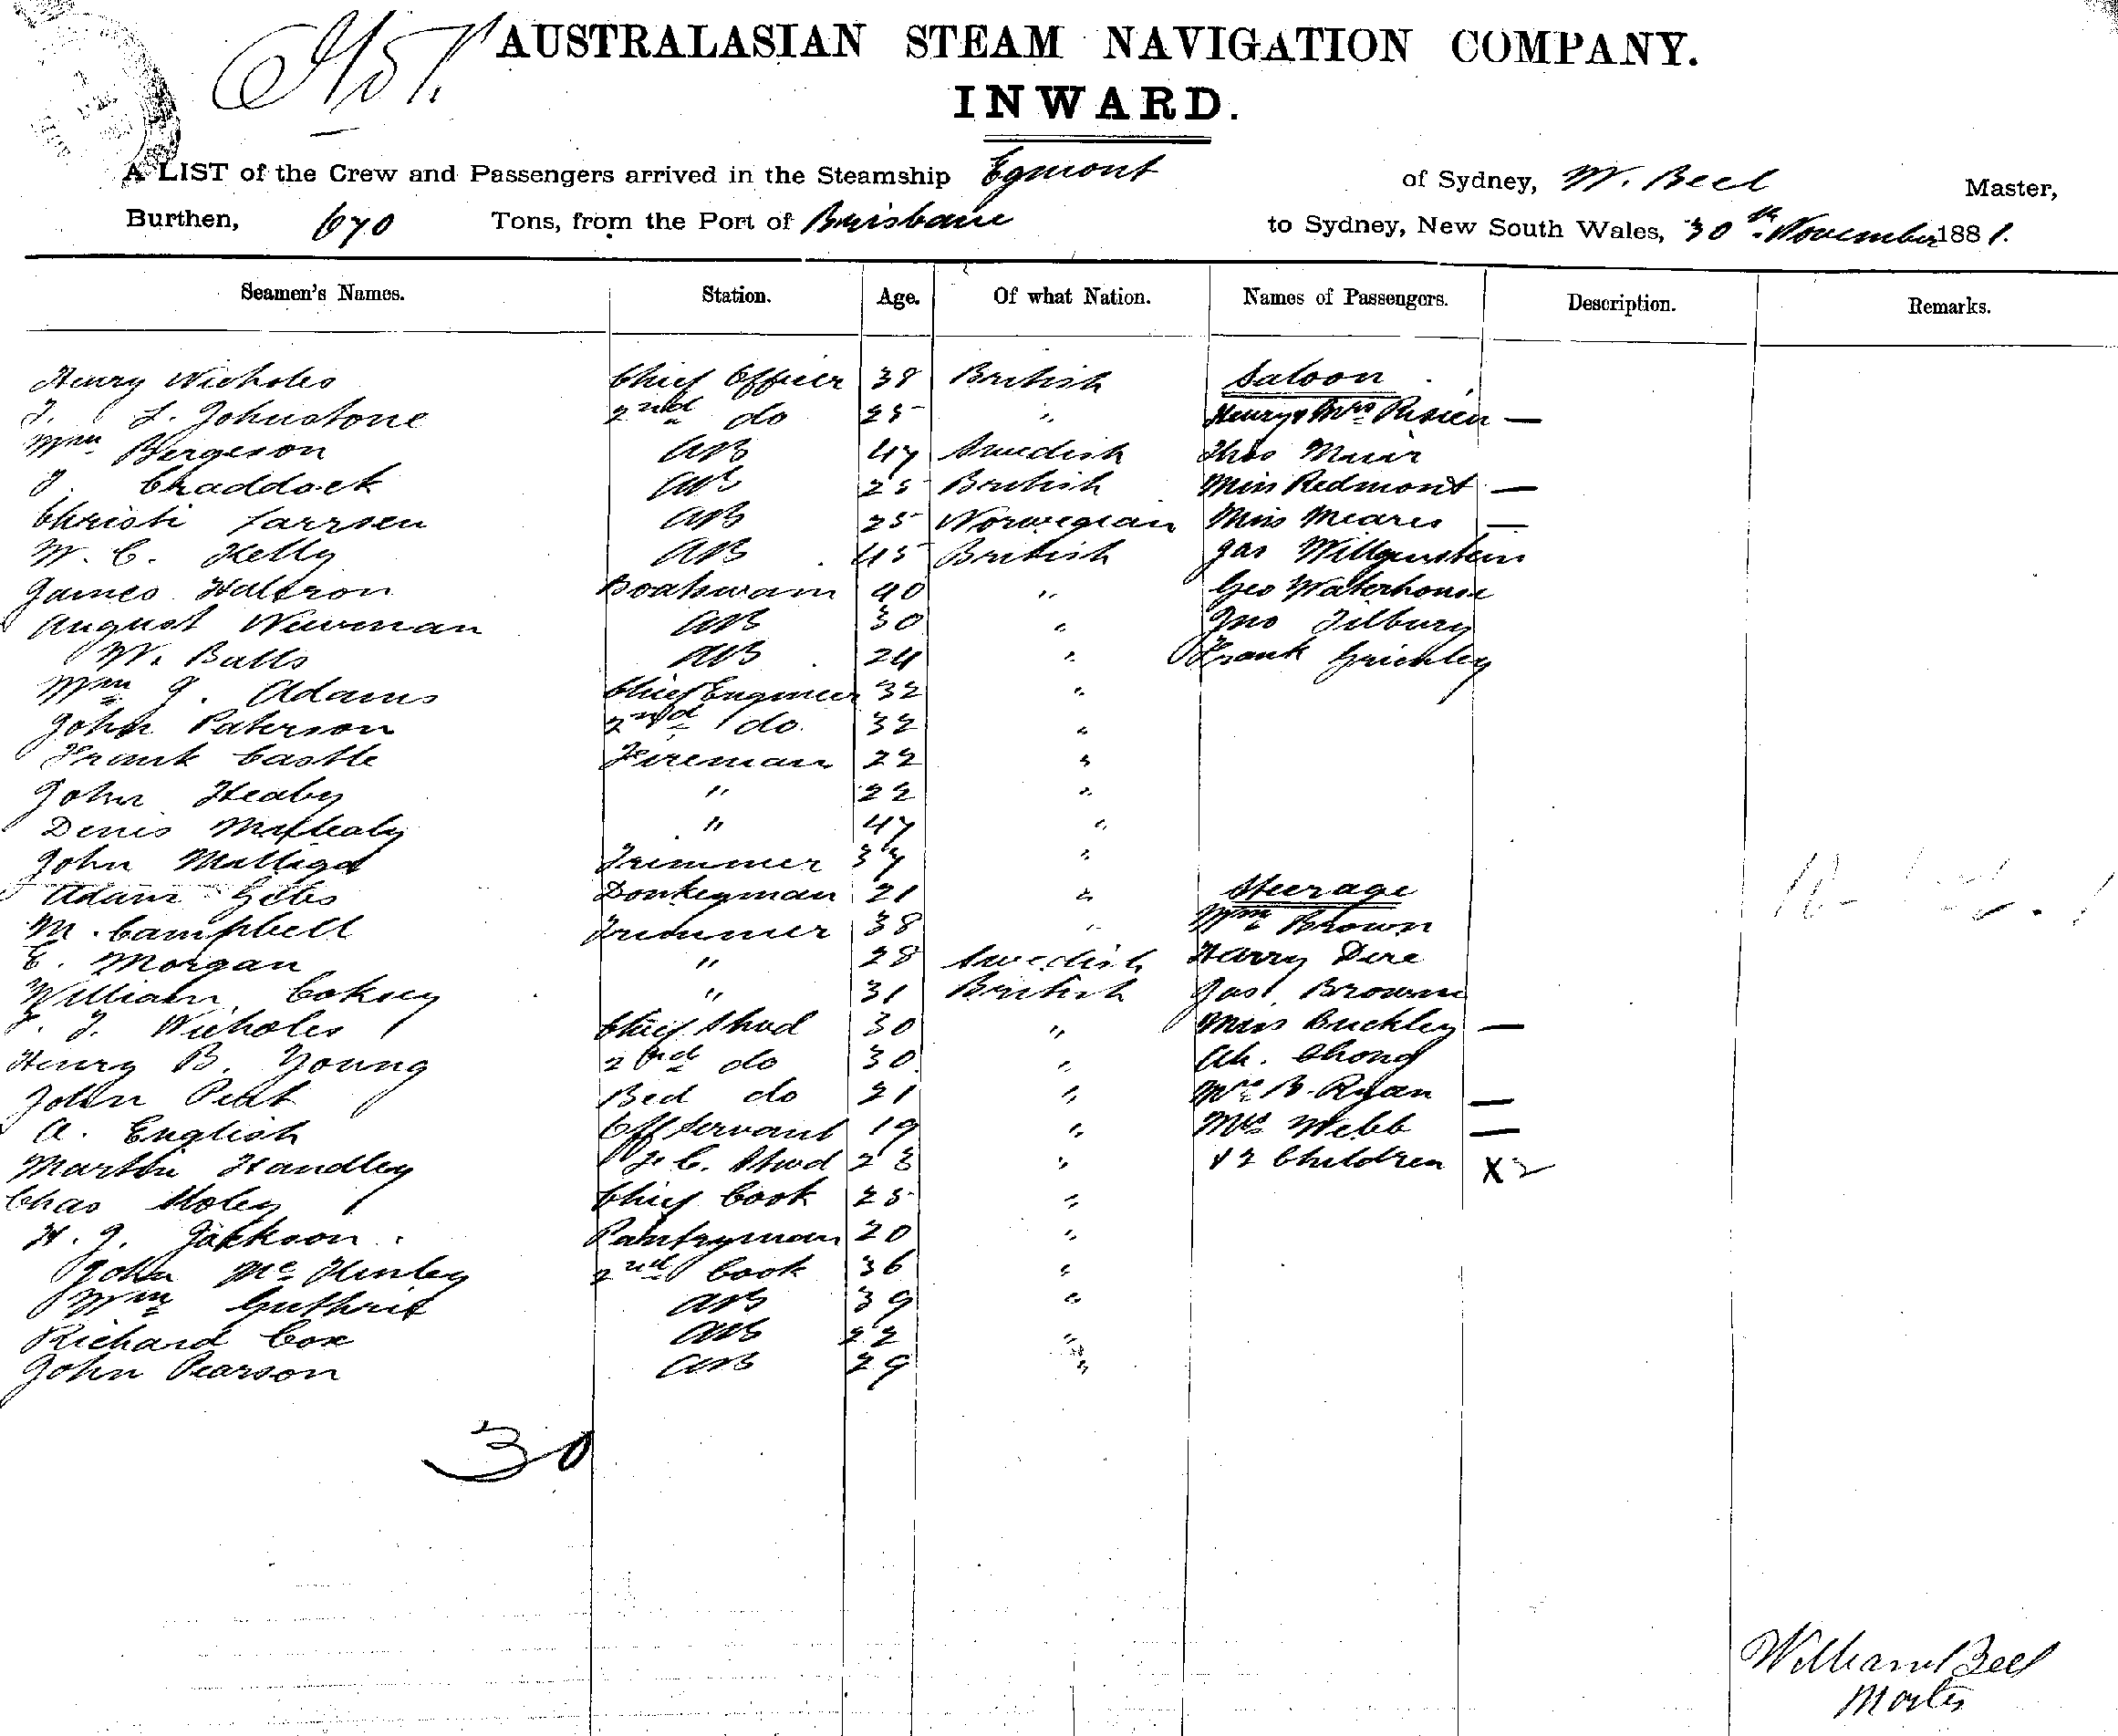 AUSTRALASIAN STEAM NAVIGATION COMPANY.
INWARD.
A LIST of the Crew and Passengers arrived in the Steamship Egmont of Sydney, W. Beel Master,
Burthen, 670 Tons, from the Port of Brisbane to Sydney, New South Wales, 30th November 1881.
Seamen's Names. Station. Age. Of what Nation. Names of Passengers. Description. Remarks.
Henry Nicholes Chief Officer 38 British Saloon
L. Johnstone 2nd do 25 " Henry & Mrs —
Wm Bergeson AB 47 Swedish Thos Muir
Chaddock AB 25 British Miss Redmont —
Christi Larrsen AB 25 Norwegian Miss Meares —
W. C. Kelly AB 45 British Jas
James Boatswain 40 " Geo Waterhouse
August Newman AB 30 " Jno Tilbury
W. Batts AB 24 " Frank
Wm J. Adams Chief Engineer 32 "
John Paterson 2nd do. 32 "
Frank Castle Fireman 22 "
John Heaby " 22 "
Denis " 47 "
John Trimmer 37 "
Adam Giles Donkeyman 21 " Steerage
M. Campbell Trimmer 38 " Wm Brown
E. Morgan " 28 Swedish Harry Dire
William Coksey " 31 British Jas Brown
Nicholes Chief Stwd 30 " Miss Buckley —
Henry B. Young 2nd do 30 " Ah. Chong
John Peat Bed do 21 " Mrs B. Ryan —
A. English Off Servant 19 " Mrs Webb —
Martin Handley F. C. Stwd 23 " & 2 Children X2
Chas Chief Cook 25 "
H. J. Jackson Pantryman 20 "
John Mc 2nd Cook 36 "
Wm Guthrie AB 39 "
Richard Cox AB 22 "
John Pearson AB 29 "
30
William Beel
Master